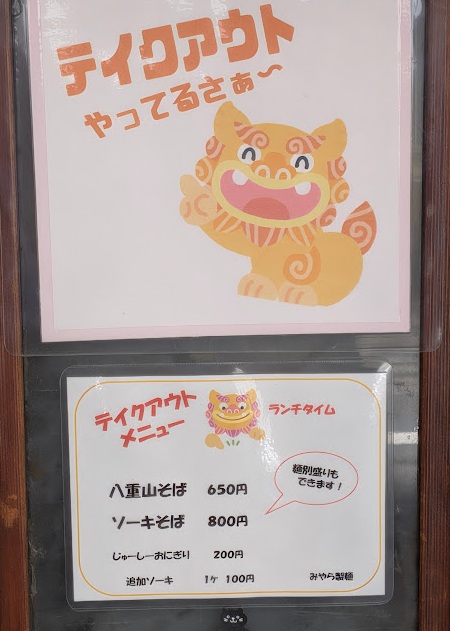 テイクアウト
やってるさぁ〜
テイクアウト
メニュー
ランチタイム
麺別盛りも
できます！
八重山そば 650円
ソーキそば 800円
じゅーしーおにぎり 200円
追加ソーキ 1ヶ 100円
みやら製麺